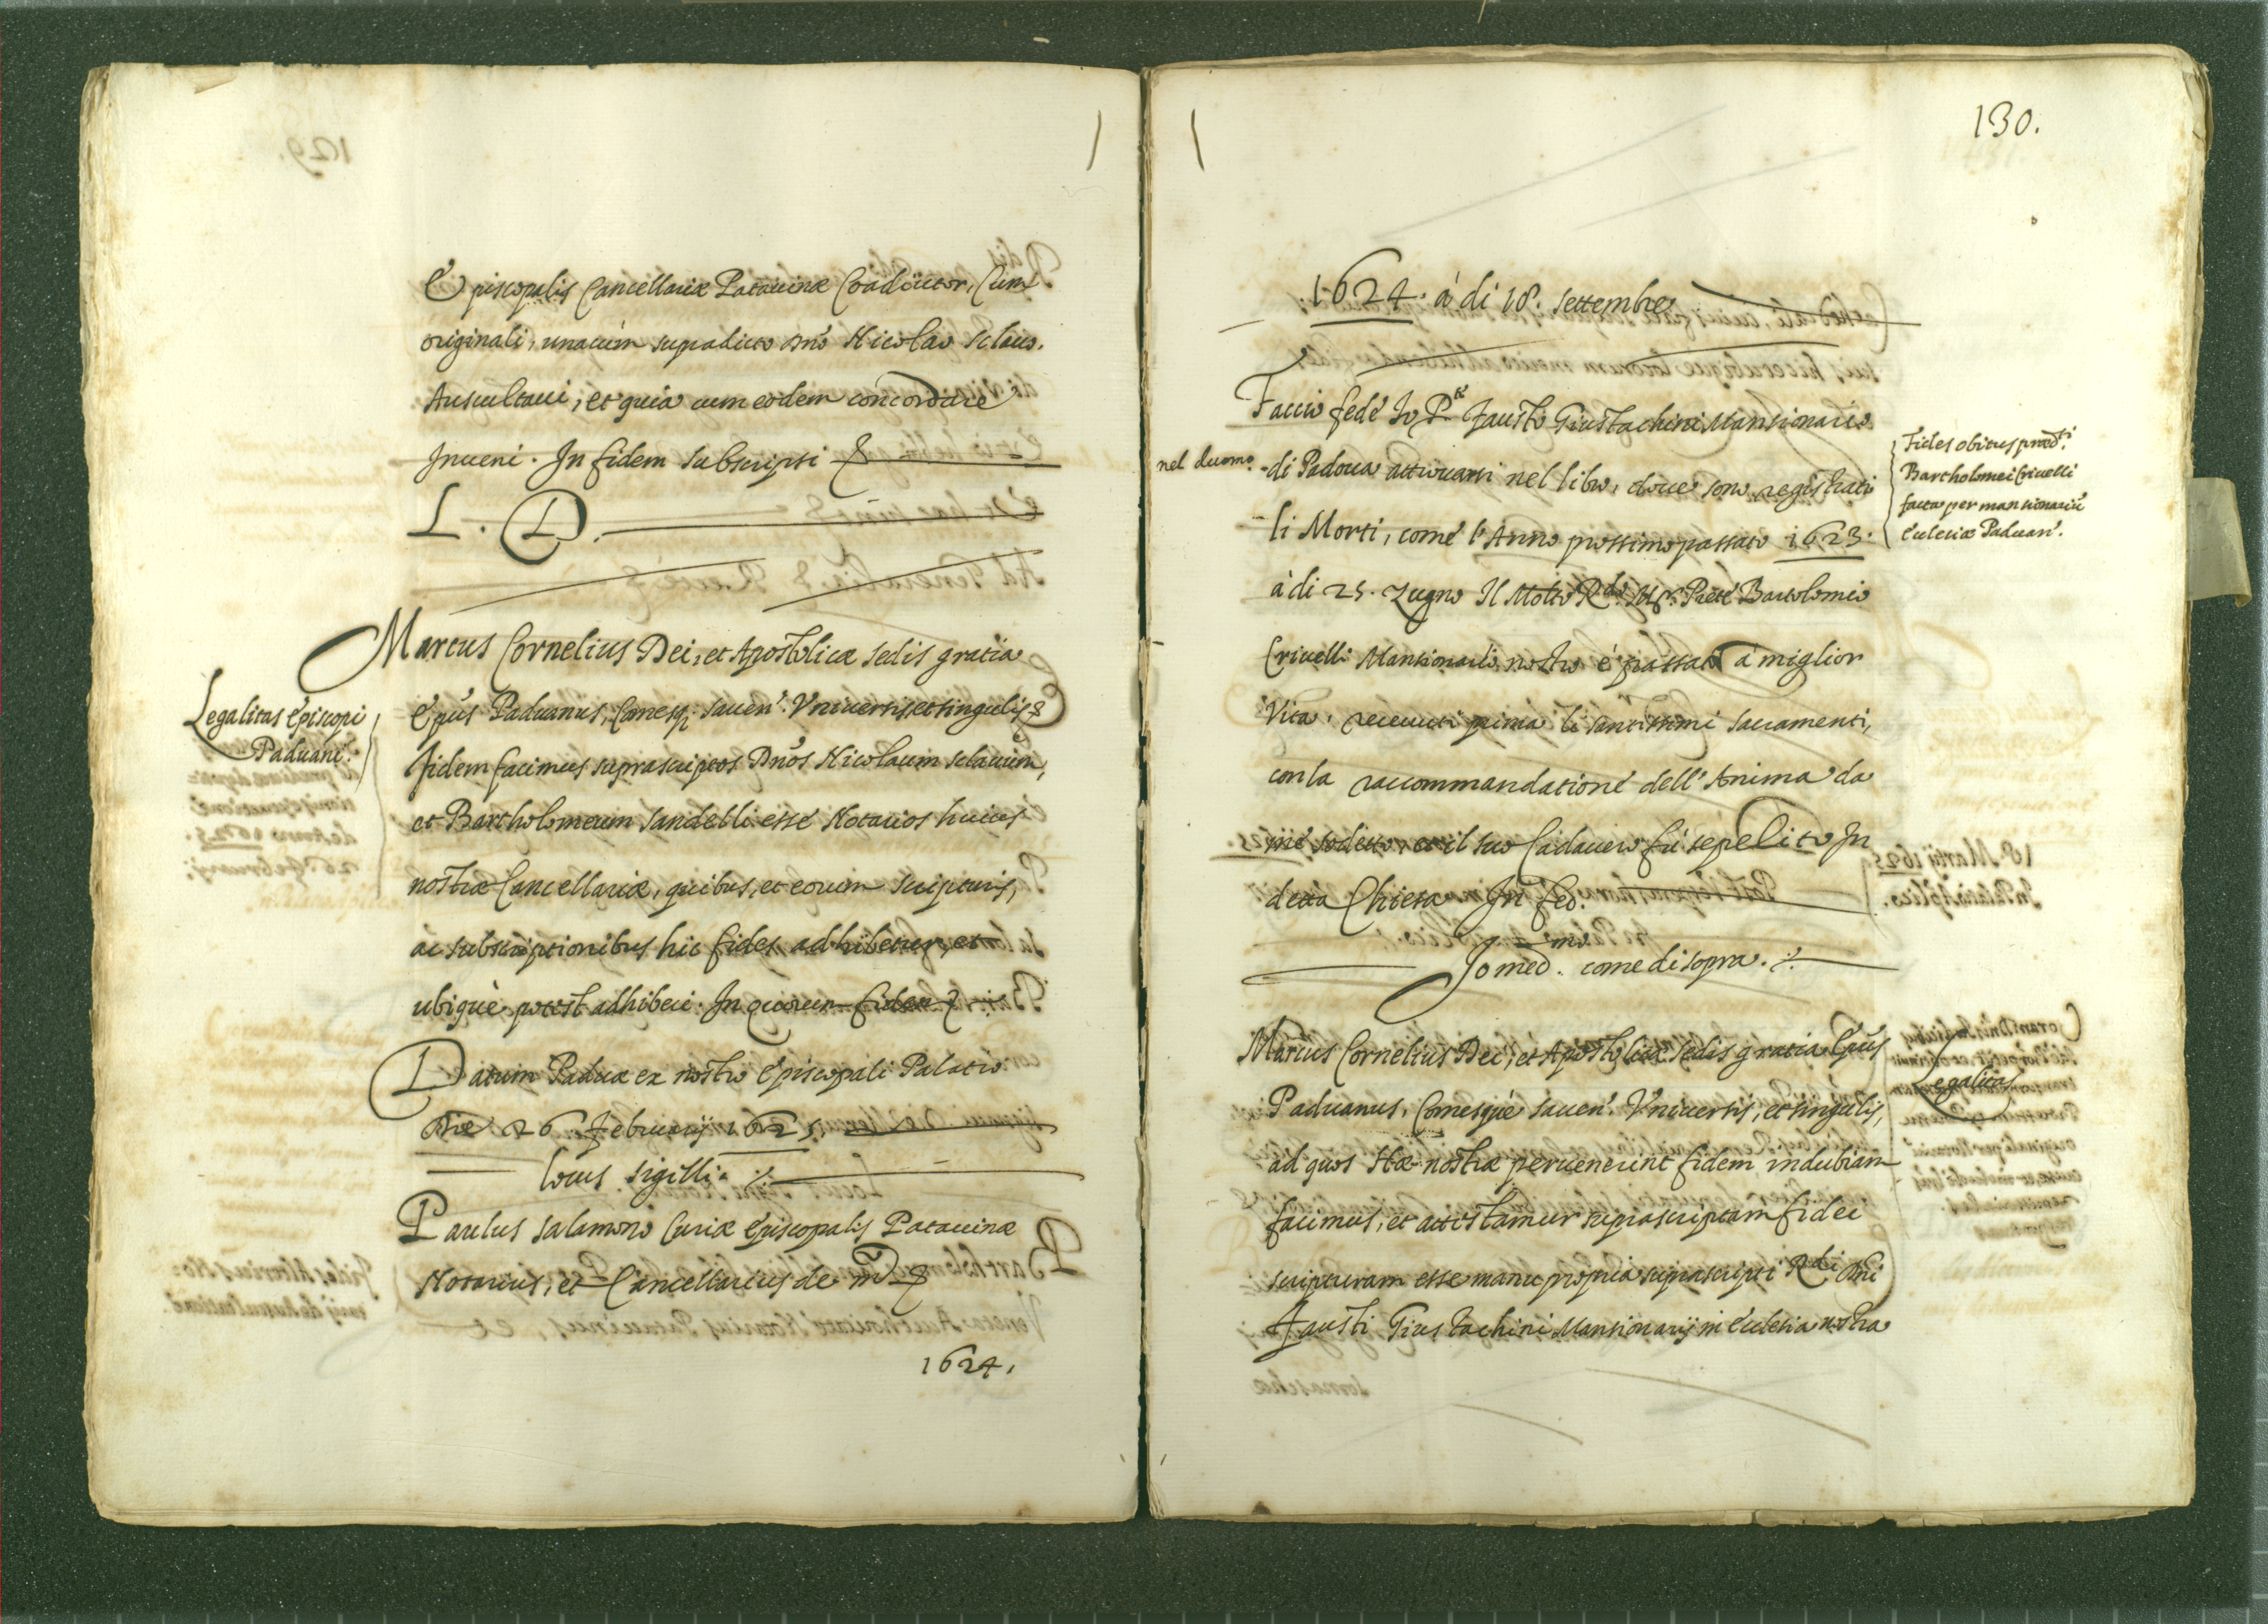 Episcopalis Cancellariæ Patavinæ Coadiutor, Cum
originali, unacum supradicto Dno Nicolao sclavo.
Auscultavi, et quia cum eodem concordare
Inveni. In fidem subscripsi &
L. D.
Marcus Cornelius Dei, et Apostolicæ sedis gratia
Epus Paduanus, Comesq; Sacen. Universis, et singulis &
fidem facimus suprascriptos Dnos Nicolaum sclavum,
et Bartholomeum Sandelli esse Notarios huius
nostræ Cancellariæ, quibus, et eorum scripturis,
ac subscriptionibus hic fides adhibetur, et
ubique potest adhiberi. In quorum fidem &
Datum Paduæ ex nostro Episcopali Palatio
die 26 februarij 1625.
locus sigilli.
Paulus Salamonio Curiæ Episcopalis Patavinæ
Notarius, et Cancellarius de md &
1624.
Legalitas Episcopi
Paduani.
130.
1624. à di 18. settembre
Faccio fede Io P. Fausto Giustachini Mansionario
nel duomo. di Padova attrovarsi nel libro, dove sono registrati
li Morti, come l'Anno prossimo passato 1623.
à di 25. Zugno Il Molto Rdo Mr. Prete Bartolomio
Crivelli Mansionario nostro è passato à miglior
Vita, recevuti prima li santissimi sacramenti,
con la raccommandatione dell'Anima da
me sodetto, et il suo Cadavero fù sepelito In
detta Chiesa In fed.
Io med.mo come di sopra.
Fides obitus præd.ti
Bartholomei Crivelli
facta per mansionariu
Ecclesiæ Paduan.
Marcus Cornelius Dei, et Apostolicæ Sedis gratia Epus
Paduanus, Comesque Sacen. Universis, et singulis,
ad quos Hæ nostræ pervenerint fidem indubiam
facimus, et attestamur suprascriptam fidei
scripturam esse manu propria suprascripti Rdi Dni
Fausti Giustachini Mansionarij in Ecclesia nostra
Legalitas